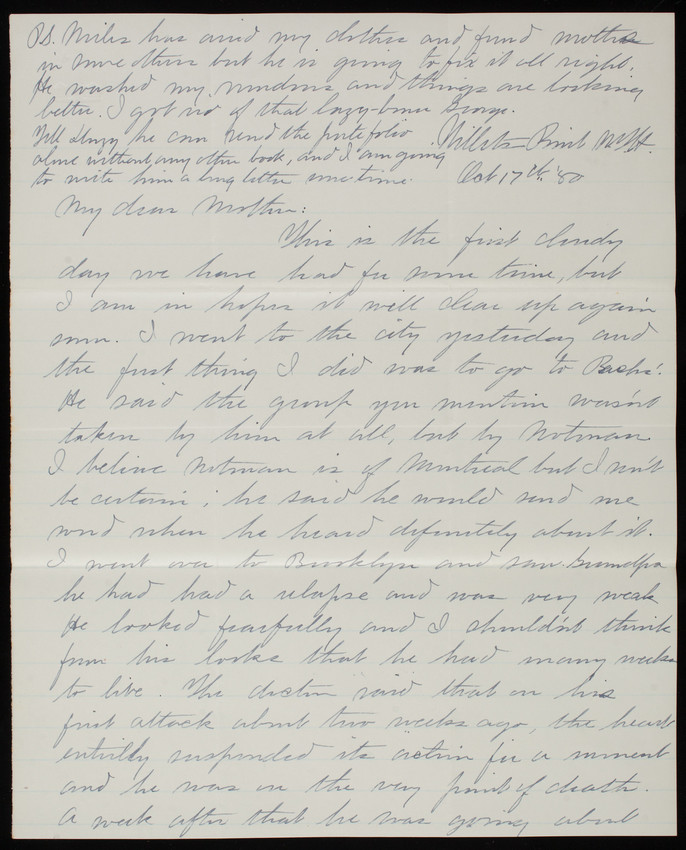 P.S. Miles has aired my clothes and found moths
in more others but he is going to fix it all right.
He washed my windows and things are looking
better. I got rid of that lazy-bones George.
Tell he can send the portefolio
alone without any other book, and I am going
to write him a long letter some time.
Willets Point N.Y.H.
Oct 17th. '80
My dear Mother:
This is the first cloudy
day we have had for some time, but
I am in hopes it will clear up again
soon. I went to the city yesterday and
the first thing I did was to go to Bachs'.
He said the group you mention wasn't
taken by him at all, but by Notman
I believe Notman is of Montreal but I won't
be certain; he said he would send me
word when he heard definitely about it.
I went over to Brooklyn and saw Grandpa
he had had a relapse and was very weak
He looked fearfully and I shouldn't think
from his looks that he had many weeks
to live. The doctor said that on his
first attack about two weeks ago, the heart
entirely suspended its action for a moment
and he was on the very point of death.
A week after that he was going about